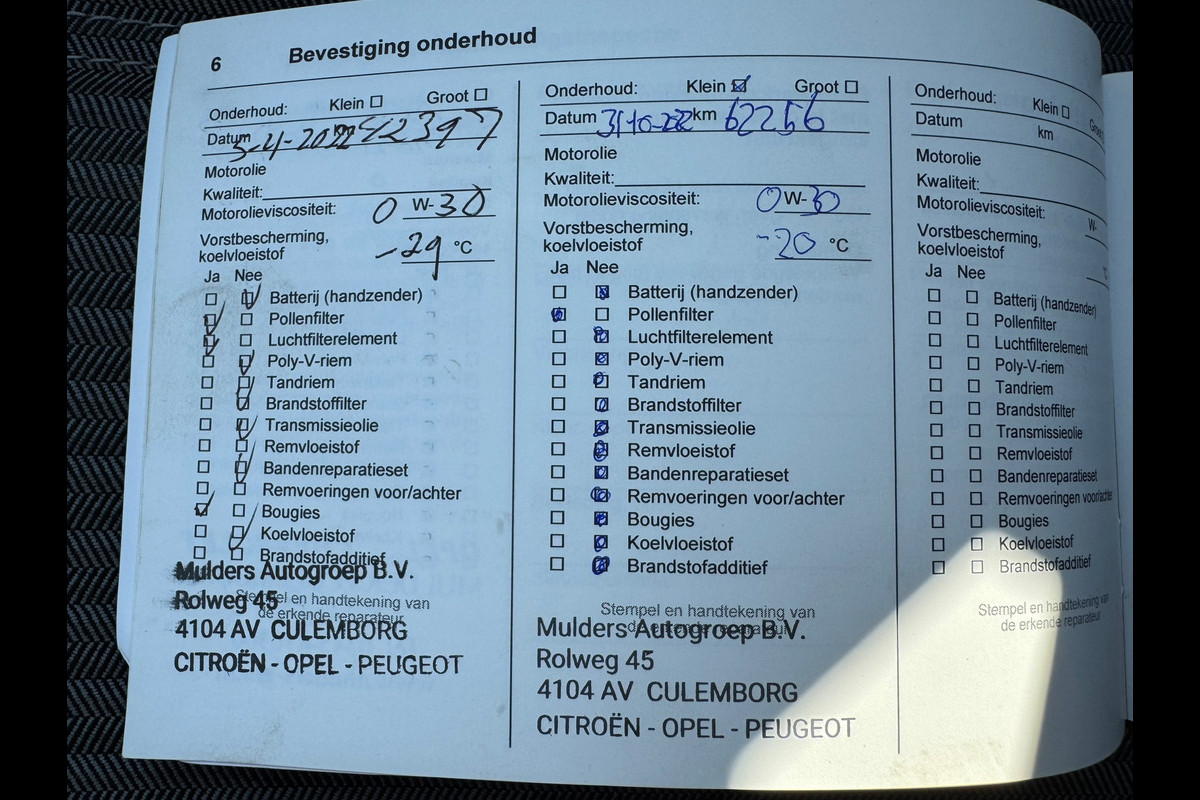 6 Bevestiging onderhoud
Onderhoud: Klein ☐ Groot ☐
Datum 5-4-2022 42397
Motorolie
Kwaliteit:
Motorolieviscositeit: 0 W-30
Vorstbescherming,
koelvloeistof -29 °C
Ja Nee
Batterij (handzender)
Pollenfilter
Luchtfilterelement
Poly-V-riem
Tandriem
Brandstoffilter
Transmissieolie
Remvloeistof
Bandenreparatieset
Remvoeringen voor/achter
Bougies
Koelvloeistof
Brandstofadditief
Stempel en handtekening van
de erkende reparateur
Mulders Autogroep B.V.
Rolweg 45
4104 AV CULEMBORG
CITROËN - OPEL - PEUGEOT
Onderhoud: Klein ☒ Groot ☐
Datum 31-10-2022 km 62256
Motorolie
Kwaliteit:
Motorolieviscositeit: 0 W-30
Vorstbescherming,
koelvloeistof -20 °C
Ja Nee
Batterij (handzender)
Pollenfilter
Luchtfilterelement
Poly-V-riem
Tandriem
Brandstoffilter
Transmissieolie
Remvloeistof
Bandenreparatieset
Remvoeringen voor/achter
Bougies
Koelvloeistof
Brandstofadditief
Stempel en handtekening van
de erkende reparateur
Mulders Autogroep B.V.
Rolweg 45
4104 AV CULEMBORG
CITROËN - OPEL - PEUGEOT
Onderhoud: Klein ☐ Groot
Datum km
Motorolie
Kwaliteit:
Motorolieviscositeit: W-
Vorstbescherming,
koelvloeistof °C
Ja Nee
Batterij (handzender)
Pollenfilter
Luchtfilterelement
Poly-V-riem
Tandriem
Brandstoffilter
Transmissieolie
Remvloeistof
Bandenreparatieset
Remvoeringen voor/achter
Bougies
Koelvloeistof
Brandstofadditief
Stempel en handtekening van
de erkende reparateur